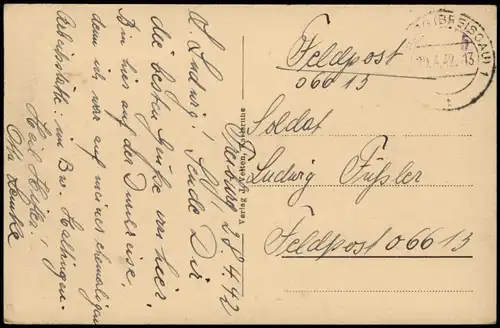 Freiburg 28.4.42
L. Ludwig! Sende Dir
die besten Grüße von hier.
Bin hier auf der Durchreise,
denn ich war auf meiner ehemaligen
Arbeitsstätte: im Bw. Haltingen.
Heil Hitler.
Otto
Verlag J. Velten, Karlsruhe
(BREISGAU) 1
Feldpost
06613
Soldat
Ludwig Füßler
Feldpost 06613